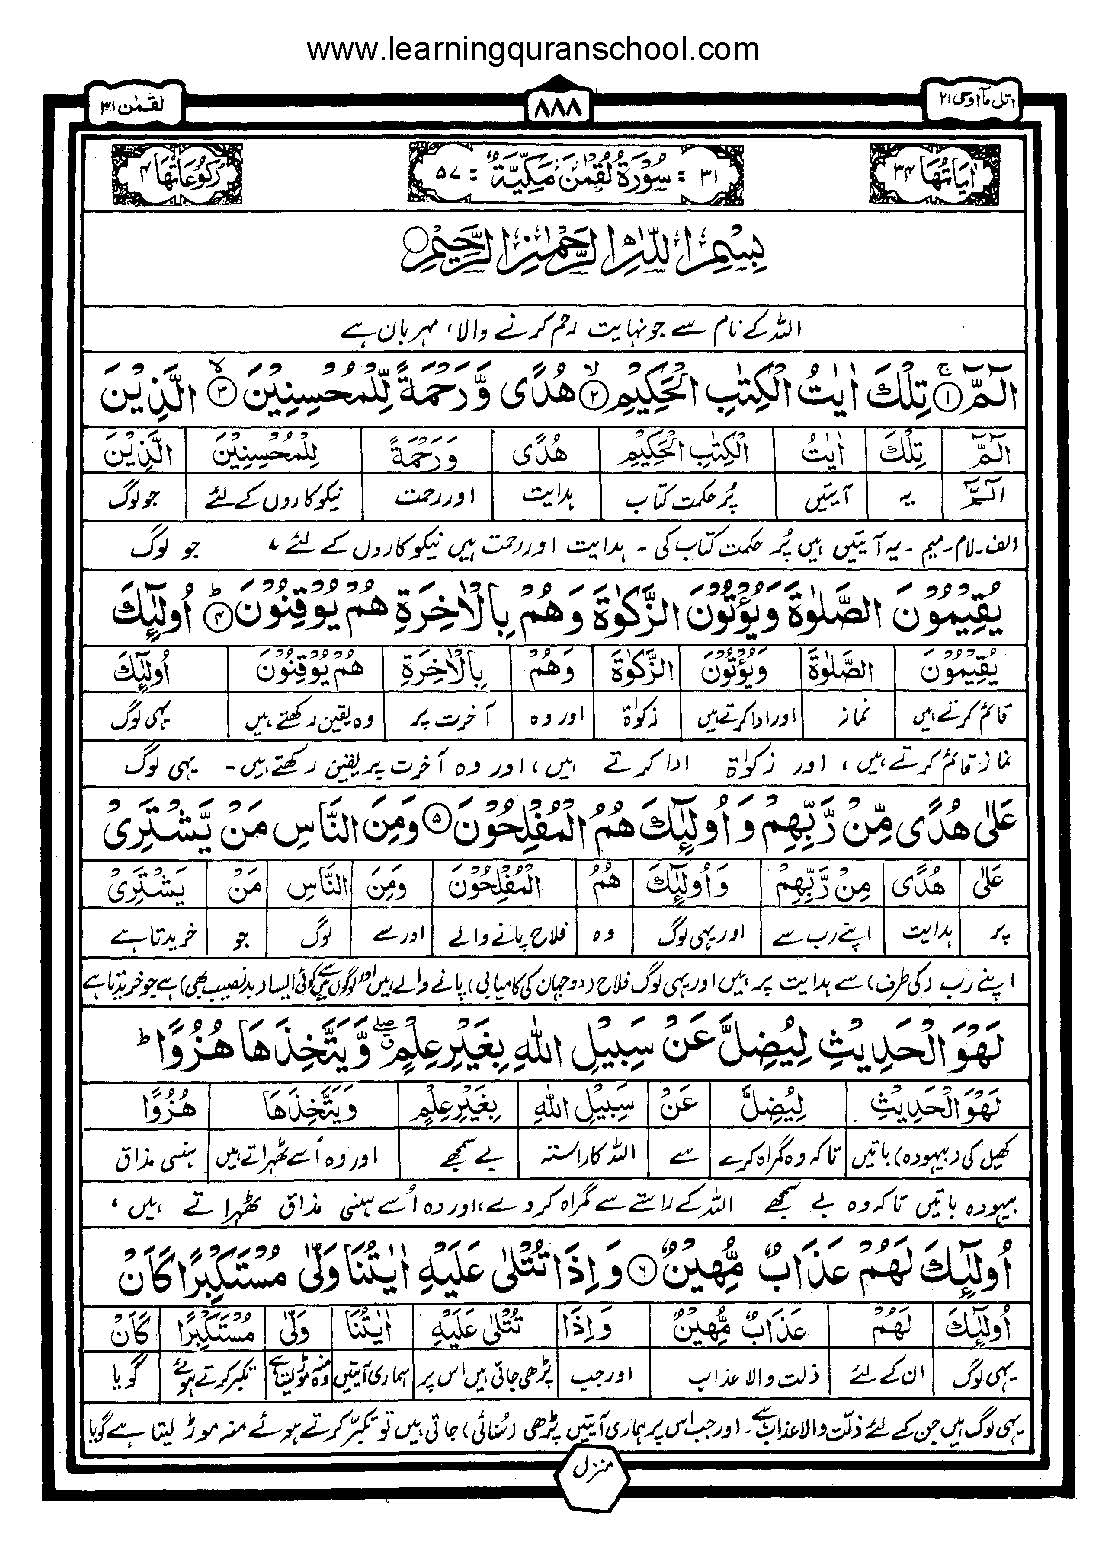 www.learningquranschool.com
اتل مآ اوحی ۲۱
۸۸۸
لقمٰن ۳۱
اٰیَاتُهَا ۳۴
۳۱ : سُوْرَةُ لُقْمٰنَ مَکِّیَّةٌ : ۵۷
رُکُوْعَاتُهَا ۴
بِسْمِ اللّٰهِ الرَّحْمٰنِ الرَّحِیْمِ
اللہ کے نام سے جو نہایت رحم کرنے والا، مہربان ہے
الٓمّٓ ۚ﴿۱﴾ تِلْكَ اٰیٰتُ الْكِتٰبِ الْحَكِیْمِ ۙ﴿۲﴾ هُدًی وَّ رَحْمَةً لِّلْمُحْسِنِیْنَ ۙ﴿۳﴾ الَّذِیْنَ
الٓمّٓ تِلْكَ اٰیٰتُ الْكِتٰبِ الْحَكِیْمِ هُدًی وَرَحْمَةً لِلْمُحْسِنِیْنَ الَّذِیْنَ
الٓمّٓ یہ آیتیں پُر حکمت کتاب ہدایت اور رحمت نیکوکاروں کے لئے جو لوگ
الف۔ لام۔ میم۔ یہ آیتیں ہیں پُر حکمت کتاب کی۔ ہدایت اور رحمت ہیں نیکوکاروں کے لئے، جو لوگ
یُقِیْمُوْنَ الصَّلٰوةَ وَیُؤْتُوْنَ الزَّكٰوةَ وَهُمْ بِالْاٰخِرَةِ هُمْ یُوْقِنُوْنَ ؕ﴿۴﴾ اُولٰٓئِكَ
یُقِیْمُوْنَ الصَّلٰوةَ وَیُؤْتُوْنَ الزَّكٰوةَ وَهُمْ بِالْاٰخِرَةِ هُمْ یُوْقِنُوْنَ اُولٰٓئِكَ
قائم کرتے ہیں نماز اور ادا کرتے ہیں زکوٰۃ اور وہ آخرت پر وہ یقین رکھتے ہیں یہی لوگ
نماز قائم کرتے ہیں، اور زکوٰۃ ادا کرتے ہیں، اور وہ آخرت پر یقین رکھتے ہیں۔ یہی لوگ
عَلٰی هُدًی مِّنْ رَّبِّهِمْ وَ اُولٰٓئِكَ هُمُ الْمُفْلِحُوْنَ ﴿۵﴾ وَمِنَ النَّاسِ مَنْ یَّشْتَرِیْ
عَلٰی هُدًی مِنْ رَّبِّهِمْ وَ اُولٰٓئِكَ هُمُ الْمُفْلِحُوْنَ وَمِنَ النَّاسِ مَنْ یَشْتَرِیْ
پر ہدایت اپنے رب سے اور یہی لوگ وہ فلاح پانے والے اور سے لوگ جو خریدتا ہے
اپنے رب (کی طرف) سے ہدایت پر ہیں اور یہی لوگ فلاح (دو جہان کی کامیابی) پانے والے ہیں اور لوگوں میں سے کوئی ایسا (بدنصیب بھی) ہے جو خریدتا ہے
لَهْوَ الْحَدِیْثِ لِیُضِلَّ عَنْ سَبِیْلِ اللّٰهِ بِغَیْرِ عِلْمٍ ۖۗ وَّیَتَّخِذَهَا هُزُوًا ؕ
لَهْوَ الْحَدِیْثِ لِیُضِلَّ عَنْ سَبِیْلِ اللّٰهِ بِغَیْرِ عِلْمٍ وَیَتَّخِذَهَا هُزُوًا
کھیل کی (بیہودہ) باتیں تاکہ وہ گمراہ کرے سے اللہ کا راستہ بے سمجھے اور وہ اُسے ٹھہراتے ہیں ہنسی مذاق
بیہودہ باتیں تاکہ وہ بے سمجھے اللہ کے راستے سے گمراہ کر دے، اور وہ اُسے ہنسی مذاق ٹھہراتے ہیں،
اُولٰٓئِكَ لَهُمْ عَذَابٌ مُّهِیْنٌ ﴿۶﴾ وَ اِذَا تُتْلٰی عَلَیْهِ اٰیٰتُنَا وَلّٰی مُسْتَكْبِرًا كَاَنْ
اُولٰٓئِكَ لَهُمْ عَذَابٌ مُّهِیْنٌ وَ اِذَا تُتْلٰی عَلَیْهِ اٰیٰتُنَا وَلّٰی مُسْتَكْبِرًا كَاَنْ
یہی لوگ ان کے لئے ذلت والا عذاب اور جب پڑھی جاتی ہیں اس پر ہماری آیتیں وہ منہ موڑ لیتا ہے تکبر کرتے ہوئے گویا
یہی لوگ ہیں جن کے لئے ذلت والا عذاب ہے۔ اور جب اس پر ہماری آیتیں پڑھی (سُنائی) جاتی ہیں تو تکبر کرتے ہوئے منہ موڑ لیتا ہے گویا
منزل